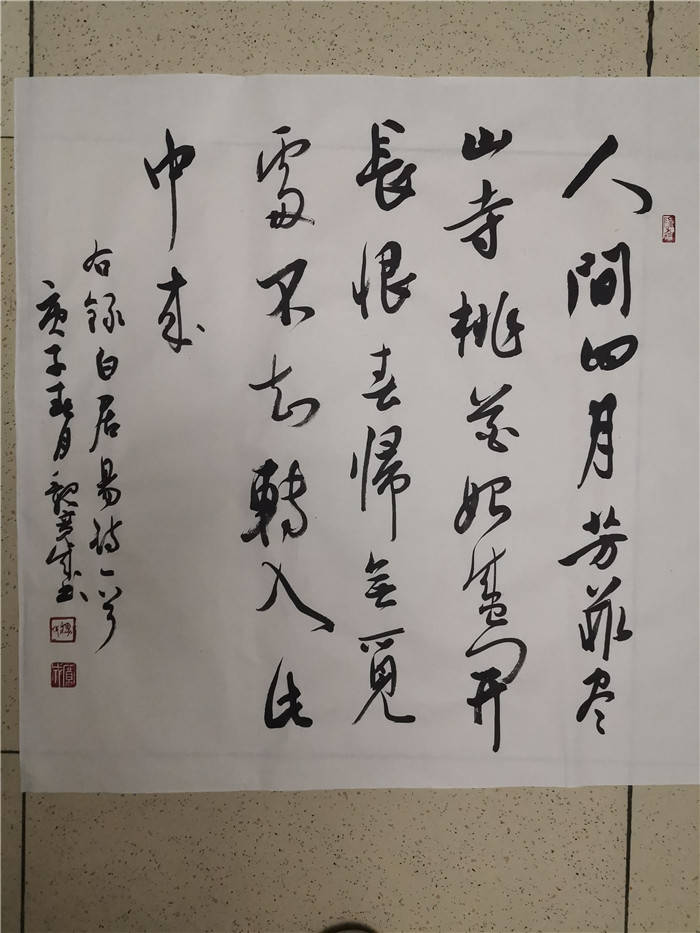 人間四月芳菲尽
山寺桃花始盛開
長恨春歸無覓
處不知轉入此
中來
右錄白居易詩一首
庚子春月